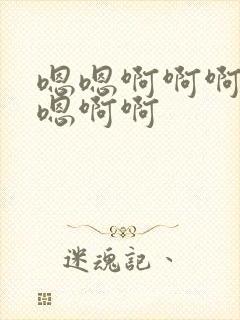 嗯嗯啊啊啊
嗯啊啊
迷魂記、